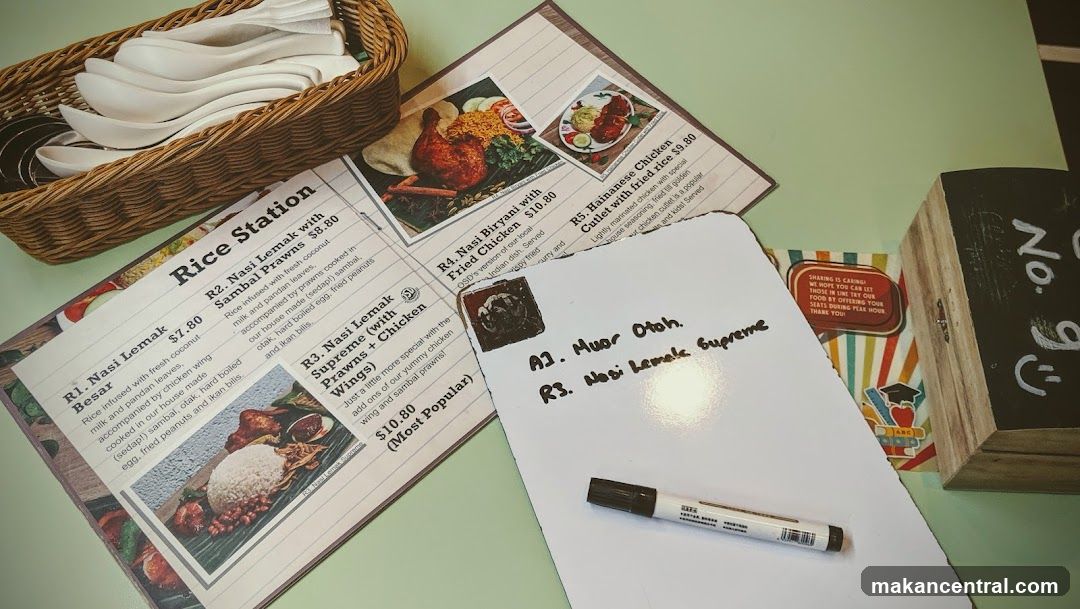 Rice Station
R1. Nasi Lemak
Besar $7.80
Rice infused with fresh coconut
milk and pandan leaves,
accompanied by chicken wing
cooked in our house made
(sedap!) sambal, otak, hard boiled
egg, fried peanuts and ikan bilis.
R2. Nasi Lemak with
Sambal Prawns $8.80
Rice infused with fresh coconut
milk and pandan leaves,
accompanied by prawns cooked in
our house made (sedap!) sambal,
otak, hard boiled egg, fried peanuts
and ikan bilis.
R3. Nasi Lemak
Supreme (with
Prawns + Chicken
Wings)
Just a little more special with the
add ons of our yummy chicken
wing and sambal prawns!
$10.80
(Most Popular)
R3. Nasi Lemak Supreme
R4. Nasi Biryani with
Fried Chicken $10.80
OSD's version of our local
Indian dish. Served
spy fried
curry and
R5. Hainanese Chicken
Cutlet with fried rice $9.80
Lightly marinated chicken with special
house seasoning, fried till golden
chicken cutlet is a popular
and kids! Served
A1. Muar Otah.
R3. Nasi Lemak Supreme
SHARING IS CARING!
WE HOPE YOU CAN LET
THOSE IN LINE TRY OUR
FOOD BY OFFERING YOUR
SEATS DURING PEAK HOUR
THANK YOU!
ABC
No.
9
makancentral.com